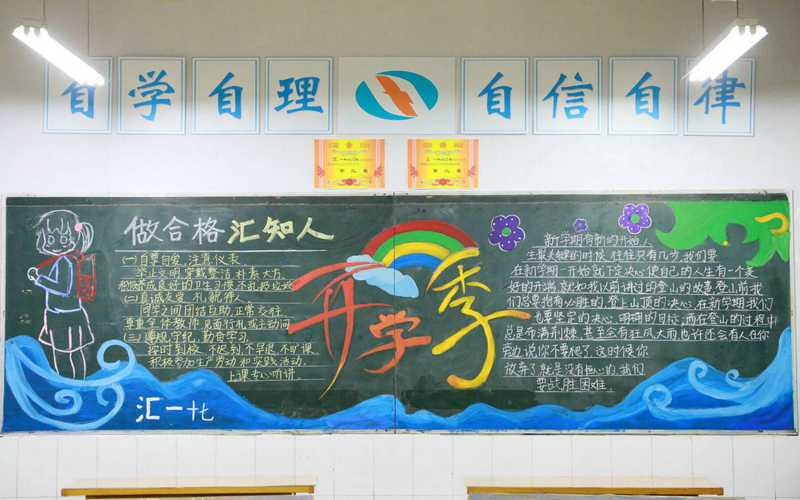 自学自理 自信自律
汇一
第三名
第二名
做合格汇知人
(一)自尊自爱,注意仪表
举止文明,穿戴整洁,朴素大方,
积极养成良好的卫生习惯,不乱扔垃圾
(二)真诚友爱,礼貌待人
同学之间团结互助,正常交往
尊重全体教师,见面行礼或主动问
(三)遵规守纪,勤奋学习
按时到校,不迟到,不早退,不旷课
积极参加生产劳动和实践活动,
上课专心听讲.
汇一十七
开学季
新学期有新的开始人
生最关键的时候往往只有几步,我们要
在新学期一开始就下定决心,使自己的人生有一个美
好的开端,就如我以前讲过的登山的故事,登山前我
们总要抱有必胜的登上山顶的决心,在新学期我们
也要坚定的决心,明确的目标,而在登山的过程中
总是布满荆棘,甚至会有狂风大雨,也许还会有人在你
旁边说你不要爬了,这时候你
放弃了,就是没有恒心的,我们
要战胜困难.